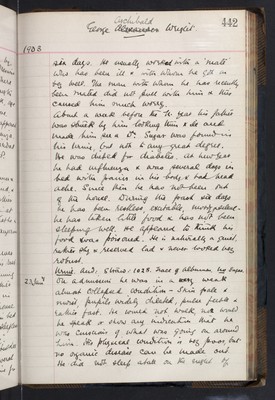 Archibald
George Alexander Wright
442
1908
six days. He usually worked with a 'mate'
who has been ill & with whom he got on
very well. The man with whom he has recently
been united did not pull with him & this
caused him much worry.
About a week before the N. year his father
was struck by him looking thin & ill and
made him see a Dr. Sugar was found in
his urine, but not to any great degree.
He was dieted for diabetes. At new year
he had influenza & was several days in
bed with pains in his body & bad head
ache. Since then he has not been out
of the house. During the past six days
he has been restless excitable,
he has taken little food & has not been
sleeping well. He appeared to think his
food was poisoned. He is naturally a quiet,
rather shy & reserved lad & never looked very
robust.
Urine Acid. 1028. Trace of albumen. No Sugar.
On admission he was in a very weak
almost collapsed condition - Skin pale &
moist, pupils widely dilated, pulse feeble &
rather fast. He would not walk, nor would
he speak or show any indication that he
was conscious of what was going on around
him. His physical condition is very poor, but
no organic disease can be made out.
He did not sleep at all on the night of